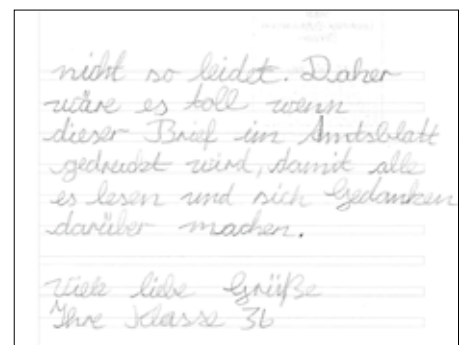 nicht so leidet. Daher
wäre es toll wenn
dieser Brief im Amtsblatt
gedruckt wird, damit alle
es lesen und sich Gedanken
darüber machen.
Viele liebe Grüße
Ihre Klasse 3b